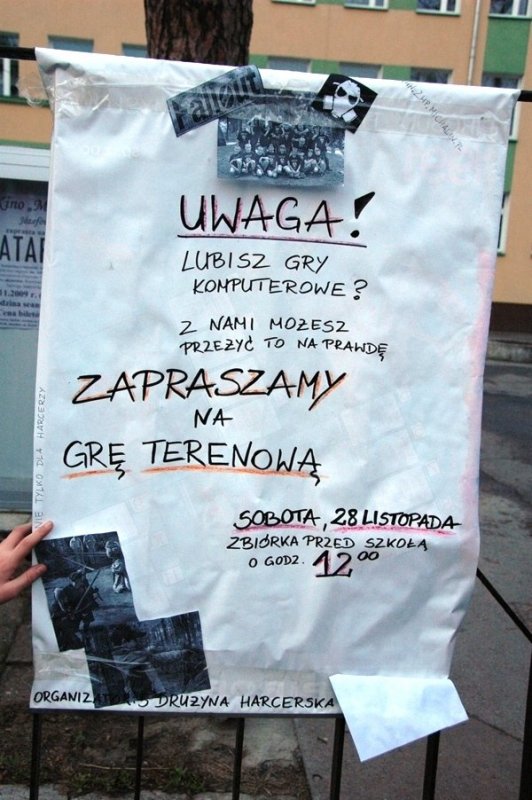 Fallout
UWAGA!
LUBISZ GRY
KOMPUTEROWE?
Z NAMI MOŻESZ
PRZEŻYĆ TO NA PRAWDĘ
ZAPRASZAMY
NA
GRĘ TERENOWĄ
SOBOTA, 28 LISTOPADA
ZBIÓRKA PRZED SZKOŁĄ
O GODZ. 12⁰⁰
NIE TYLKO DLA HARCERZY
5 DRUŻYNA HARCERSKA
Kino „M
Józefów
zaprasza na
ATAR
11.2009 r.